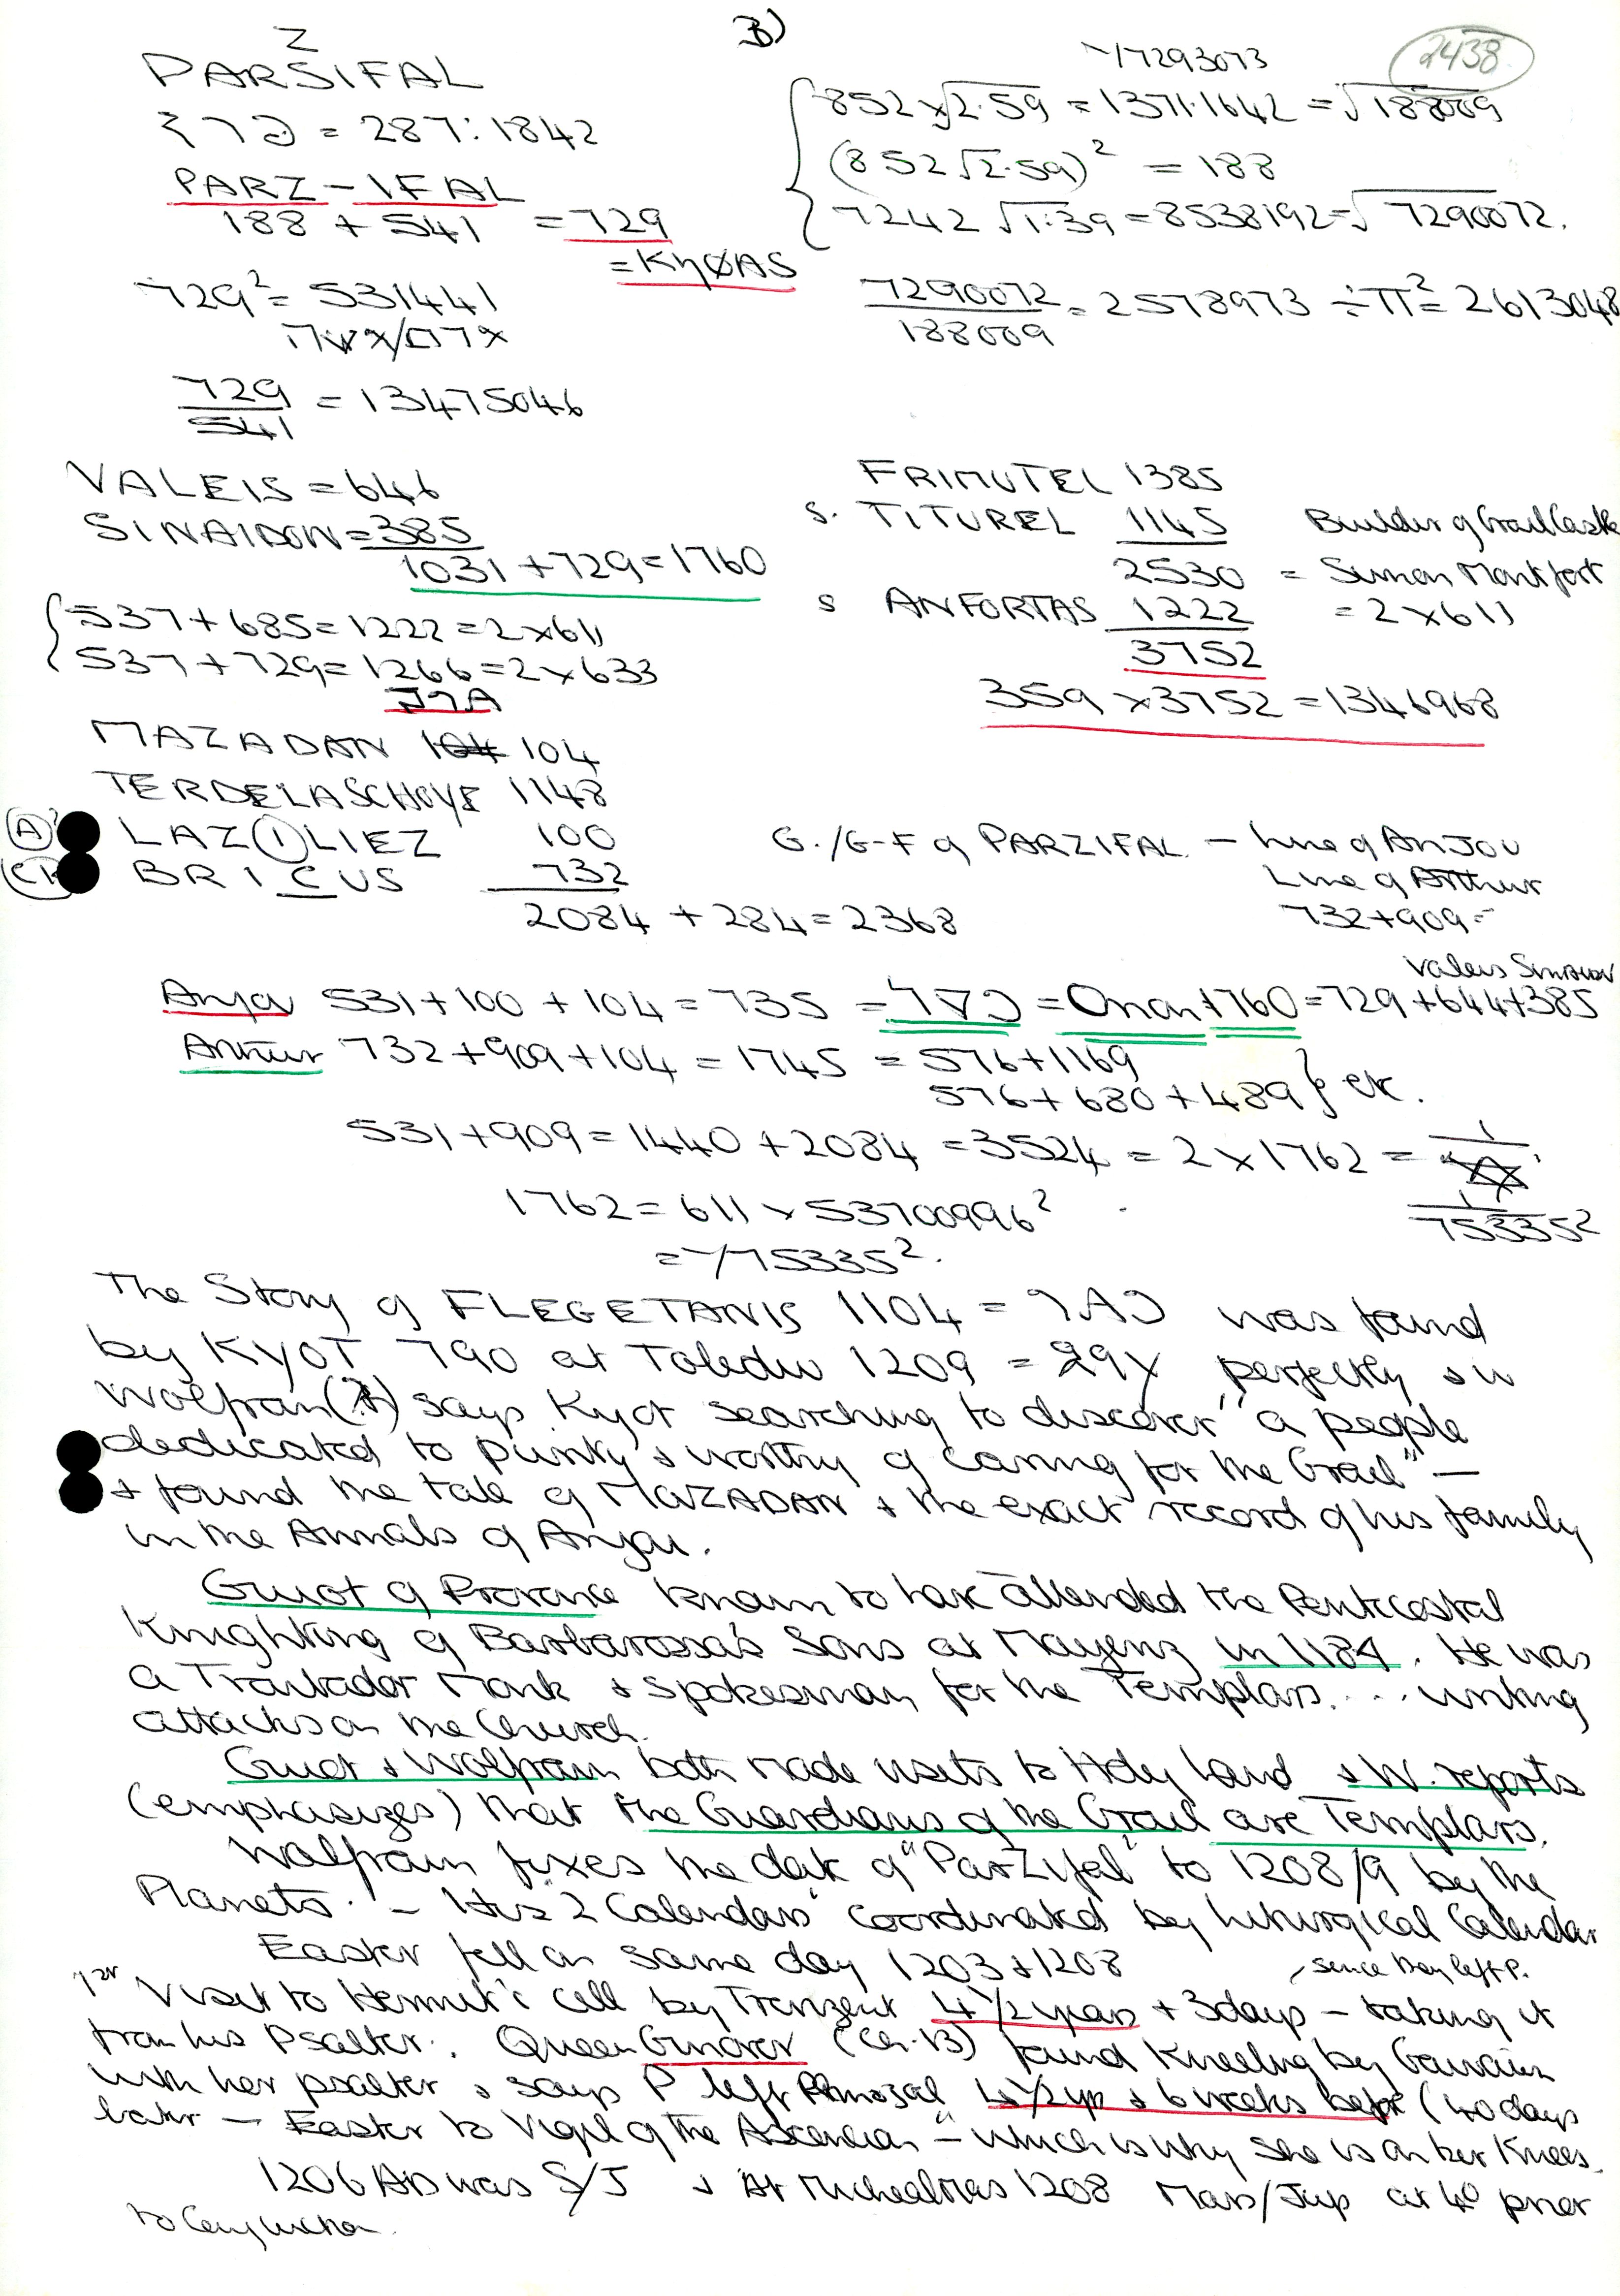 B)
2438
Z
PARSIFAL
= 287:1842
PARZ-IFAL
188 + 541 = 729
= KηØAS
729² = 531441
729/541 = 13475046
7293073
852 × √2.59 = 1371.1642 = √188009
(852 √2.59)² = 188
7242 √1.39 = 8538192 = √7290072.
7290072/188009 = 2578973 ÷ π² = 2613048
VALEIS = 646
SINAIDON = 385
1031 + 729 = 1760
537 + 685 = 1222 = 2×611
537 + 729 = 1266 = 2×633
FRIMUTEL 1385
S. TITUREL 1145 Builder of Grail Castle
2530 = Simon Montfort
S ANFORTAS 1222 = 2×611
3752
359 × 3752 = 1346968
MAZADAN 104 104
TERDELASCHOYE 1148
(A) LAZ(I)LIEZ 100
BRICUS 732
2084 + 284 = 2368
G./G-F of PARZIFAL – Line of ANJOU
Line of Arthur
732+909=
Valeis Sinaidon
Anjou 531+100+104 = 735 = = Onan + 1760 = 729+644+385
Arthur 732+909+104 = 1745 = 576+1169
576+680+489 } etc.
531+909 = 1440 + 2084 = 3524 = 2×1762 =
1762 = 611 × 53700996²
1/75335²
= 75335².
The Story of FLEGETANIS 1104 = was found
by KYOT 790 at Toledo 1209 = perfectly &
Wolfram says Kyot searching to discover "a people
dedicated to purity & worthy of caring for the Grail" –
& found the tale of MAZADAN & the exact record of his family
in the Annals of Anjou.
Guiot of Provence known to have attended the Pentecostal
Knighting of Barbarossa's Sons at Mayenz in 1184. He was
a Troubador Monk & Spokesman for the Templars.... writing
attacks on the Church.
Guiot & Wolfram both made visits to Holy Land & W. reports
(emphasizes) that the Guardians of the Grail are Templars.
Wolfram fixes the date of "Parzifal" to 1208/9 by the
Planets. – His 2 Calendars coordinated by Liturgical Calendar
Easter fell on same day 1203 & 1208
since they left P.
1st Visit to Hermit's cell by Trevzent 4 1/2 years + 3 days – taking it
from his Psalter. Queen Ginover (Ch. 13) found kneeling by Gawain
with her psalter & says P left 4 1/2 yrs & 6 weeks before (40 days
later – Easter to Vigil of the Ascension – which is why she is on her knees.
1206 AD was S/J & At Michaelmas 1208 Mars/Jup at 4° prior
to Conjunction.